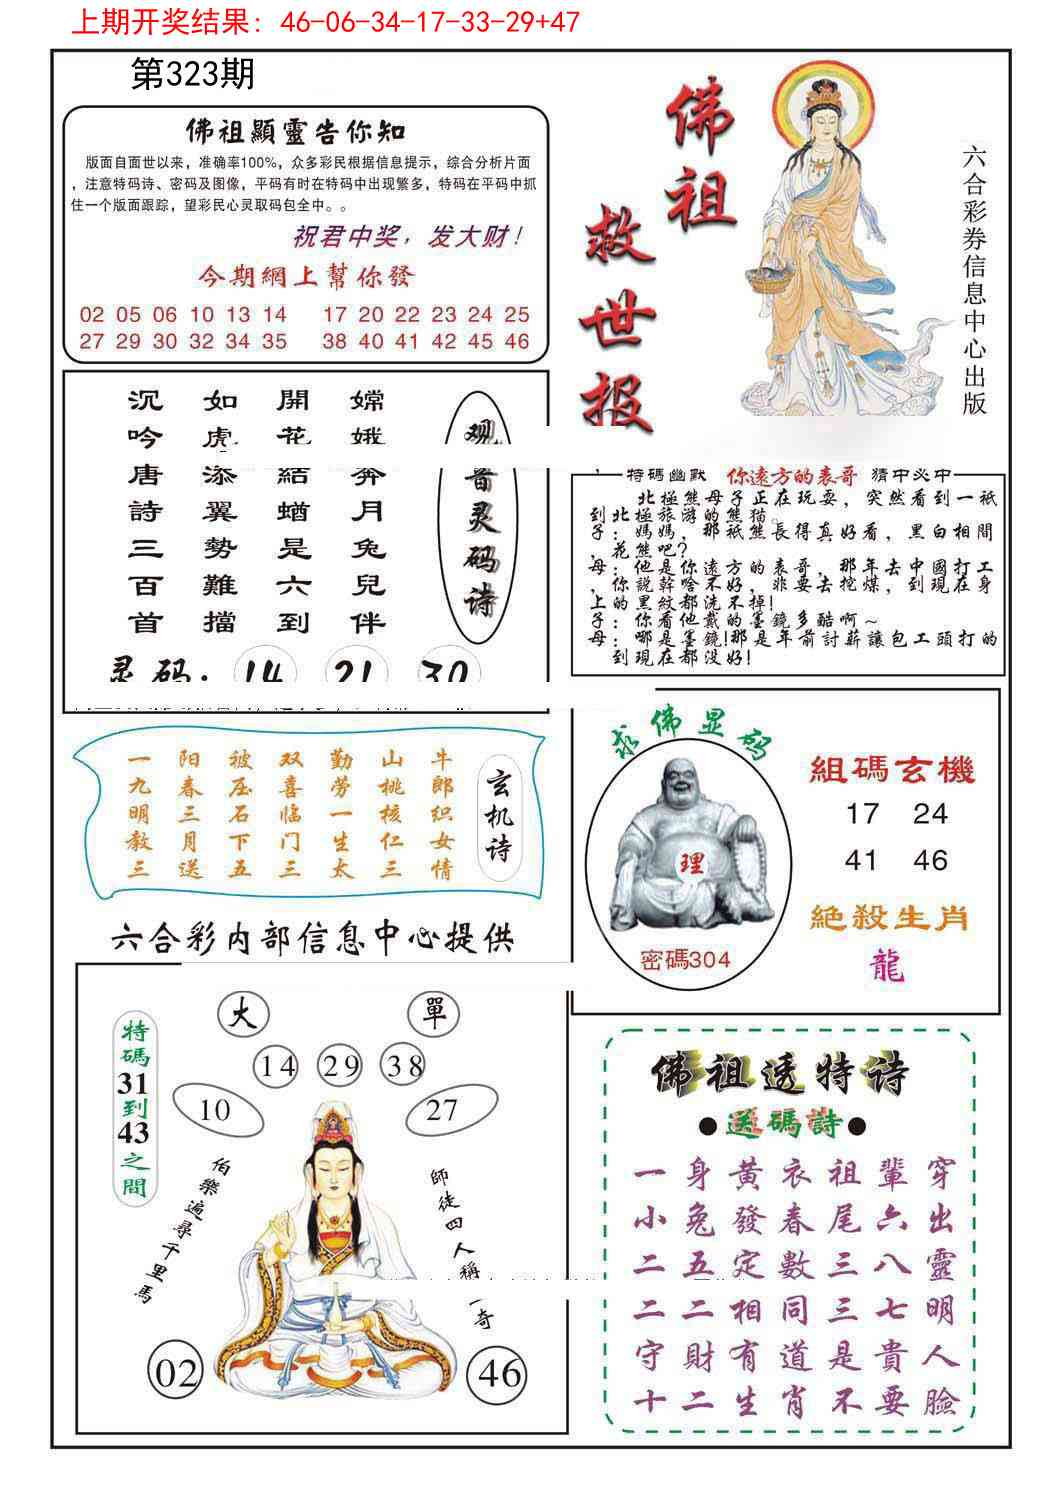 上期开奖结果：46-06-34-17-33-29+47
第323期
佛祖顯靈告你知
版面自面世以来，准确率100%，众多彩民根据信息提示，综合分析片面
，注意特码诗、密码及图像，平码有时在特码中出现繁多，特码在平码中抓
住一个版面跟踪，望彩民心灵取码包全中。。
祝君中奖，发大财！
今期網上幫你發
02 05 06 10 13 14 17 20 22 23 24 25
27 29 30 32 34 35 38 40 41 42 45 46
佛祖
救世报
六合彩券信息中心出版
嫦娥奔月兔兒伴
開花結蝤是六到
如虎添翼勢難擋
沉吟唐詩三百首
观音灵码诗
灵码：14 21 30
特碼幽默 你遠方的表哥 猜中必中
北極熊母子正在玩耍，突然看到一衹
到北極旅游的熊猫。
子：媽媽，那衹熊長得真好看，黑白相間
，花熊吧？
母：他是你遠方的表哥，那年去中國打工
，你説幹啥不好，非要去挖煤，到現在身
上的黑紋都洗不掉！
子：你看他戴的墨鏡多酷啊～
母：哪是墨鏡！那是年前討薪讓包工頭打的
到現在都没好！
玄机诗
牛郎织女情
山桃核仁三
勤劳一生太
双喜临门三
被压石下五
阳春三月送
一九明教三
求佛显码
理
密碼304
組碼玄機
17 24
41 46
絕殺生肖
龍
六合彩内部信息中心提供
特碼31到43之間
大 單
14 29 38
10 27
伯樂遍尋千里馬
師徒四人稱一奇
02 46
佛祖透特诗
●送碼詩●
一身黃衣祖輩穿
小兔發春尾六出
二五定數三八靈
二二相同三七明
守財有道是貴人
十二生肖不要臉